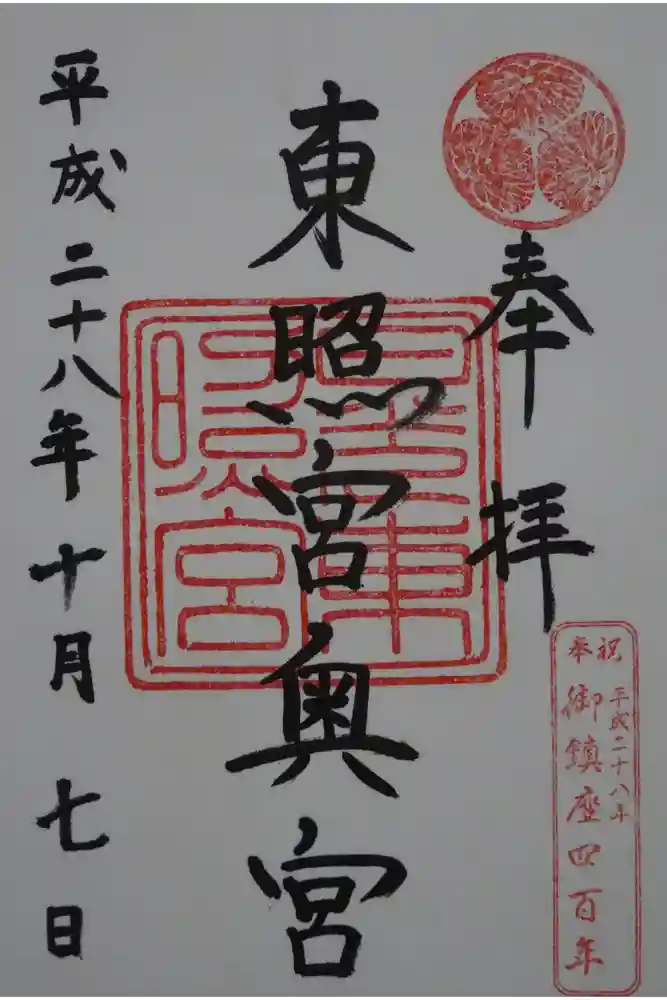 奉拝
東照宮奥宮
平成二十八年十月七日
日光東照宮
奉祝
平成二十八年
御鎮座四百年